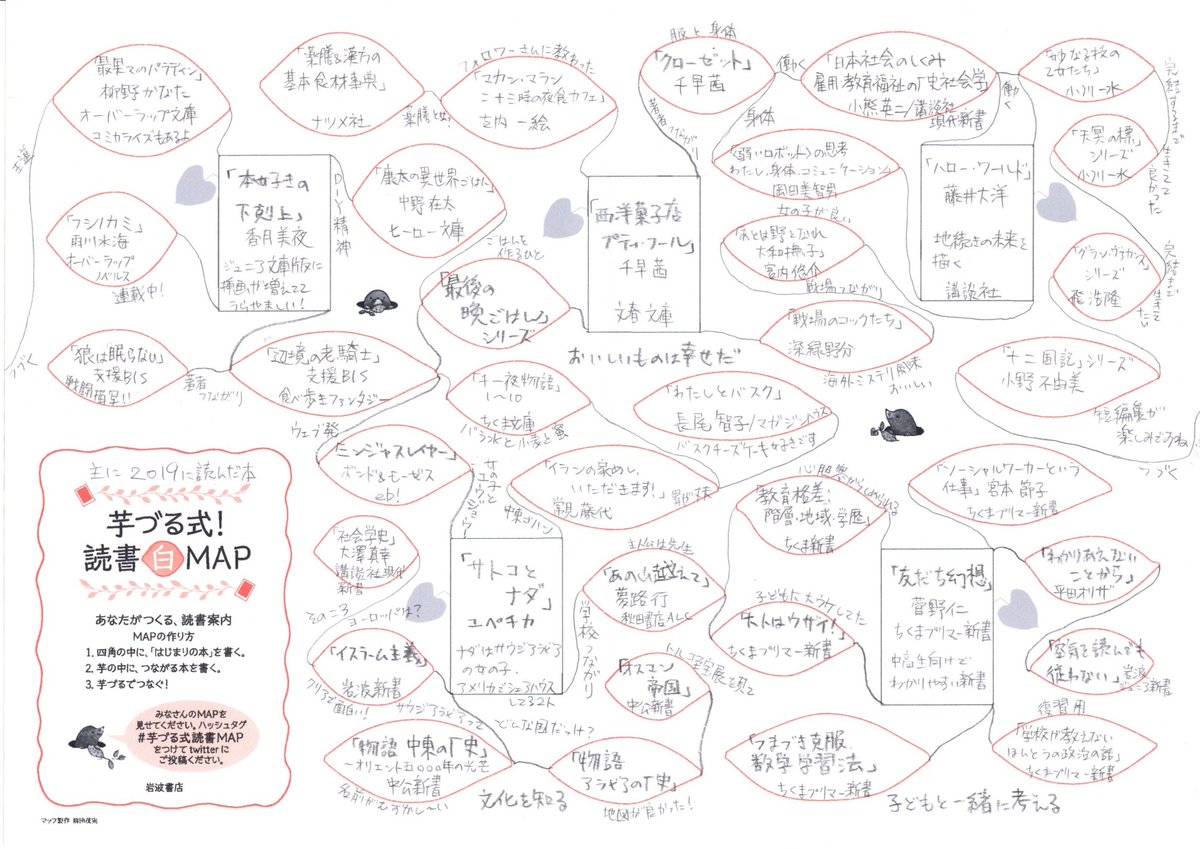 「最果てのパラディン」
柳野かなた
オーバーラップ文庫
コミカライズもあるよ
王道
「薬膳&漢方の
基本食材事典」
ナツメ社
薬膳とは!
フォロワーさんに教わった
「マカン・マラン
二十三時の夜食カフェ」
古内一絵
服と身体
「クローゼット」
千早茜
著者つながり
働く
「日本社会のしくみ
雇用・教育・福祉の「史社会学」
小熊英二/講談社
現代新書
働く
「妙なる技の
乙女たち」
小川一水
完結するまで
生きてて
良かった
「天冥の標」
シリーズ
小川一水
身体
〈弱いロボット〉の思考
わたし・身体・コミュニケーション
岡田美智男
女の子が良い
「あとは野となれ
大和撫子」
宮内悠介
戦場つながり
「ハロー・ワールド」
藤井太洋
地続きの未来を
描く
講談社
完結まで
生きて
たい
「グラン・ヴァカンス」
シリーズ
飛浩隆
「本好きの
下剋上」
香月美夜
ジュニア文庫版に
挿画が増えてて
うらやましい!
DIY精神
「康太の異世界ごはん」
中野在太
ヒーロー文庫
「西洋菓子店
プティ・フール」
千早茜
文春文庫
「フシノカミ」
雨川水海
オーバーラップ
ノベルス
連載中!
ごはんを
作るひと
「最後の
晩ごはん」
シリーズ
おいしいものは幸せだ
「戦場のコックたち」
深緑野分
海外ミステリ風味
おいしい
つづく
「狼は眠らない」
支援BIS
戦闘描写!!
著者
つながり
「辺境の老騎士」
支援BIS
食べ歩きファンタジー
ウェブ発
「千一夜物語」
1～10
ちくま文庫
バラ水と小麦と蜜
「わたしとバスク」
長尾智子/マガジンハウス
バスクチーズケーキ好きです
「十二国記」シリーズ
小野不由美
短編集が
楽しみですね
つづく
「ニンジャスレイヤー」
ボンド&モーゼズ
eb!
女の子と
ニューヨーク
「イランの家めし、
いただきます!」
常見藤代
中東ゴハン
「教育格差:
階層・地域・学歴」
ちくま新書
「ソーシャルワーカーという
仕事」宮本節子
ちくまプリマー新書
「社会学史」
大澤真幸
講談社現代
新書
そのころ
ヨーロッパは?
「サトコと
ナダ」
ユペチカ
ナダはサウジアラビア
の女の子。
アメリカでシェアハウス
して32人
主人公は先生
「あの山越えて」
夢路行
秋田書店ALC
学校つながり
子どもに大ウケしてた
「大人はウザい!」
ちくまプリマー新書
「友だち幻想」
菅野仁
ちくまプリマー新書
中高生向けで
わかりやすい新書
「わかりあえない
ことから」
平田オリザ
「空気を読んでも
従わない」岩波
ジュニア新書
復習用
「学校が教えない
ほんとうの政治の話」
ちくまプリマー新書
「イスラーム主義」
岩波新書
クリアで
面白い!
サウジアラビアって
どんな国だっけ?
トルコ至宝展で観て
「オスマン
帝国」
中公新書
「物語 中東の「史」
～オリエント五〇〇〇年の光芒
中公新書
名前がむずかし～い
文化を知る
「物語
アラビアの「史」
地図が良かった!
「つまづき克服、
数学学習法」
ちくまプリマー新書
子どもと一緒に考える
主に2019に読んだ本
芋づる式!
読書(白)MAP
あなたがつくる、読書案内
MAPの作り方
1. 四角の中に、「はじまりの本」を書く。
2. 芋の中に、つながる本を書く。
3. 芋づるでつなぐ!
みなさんのMAPを
見せてください。ハッシュタグ
#芋づる式読書MAP
をつけてtwitterに
ご投稿ください。
岩波書店